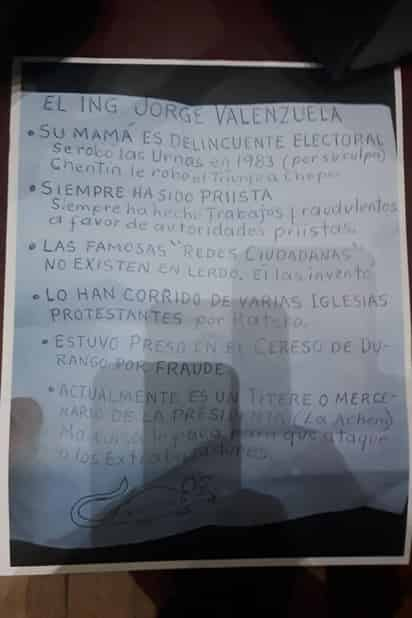 EL ING JORGE VALENZUELA
• SU MAMÁ ES DELINCUENTE ELECTORAL
Se robo las Urnas en 1983 (por su culpa)
Chentin le robo el Triunfo a Chepe.
• SIEMPRE HA SIDO PRIISTA
Siempre ha hecho Trabajos fraudulentos
a favor de autoridades priistas.
• LAS FAMOSAS "REDES CIUDADANAS"
NO EXISTEN EN LERDO. El las invento
• LO HAN CORRIDO DE VARIAS IGLESIAS
PROTESTANTES por Ratero.
• ESTUVO PRESO EN EL CERESO DE DU-
RANGO POR FRAUDE
• ACTUALMENTE ES UN TITERE O MERCE-
NARIO DE LA PRESIDENTA (La Achem)
para que ataque
a los Extrabajadores.